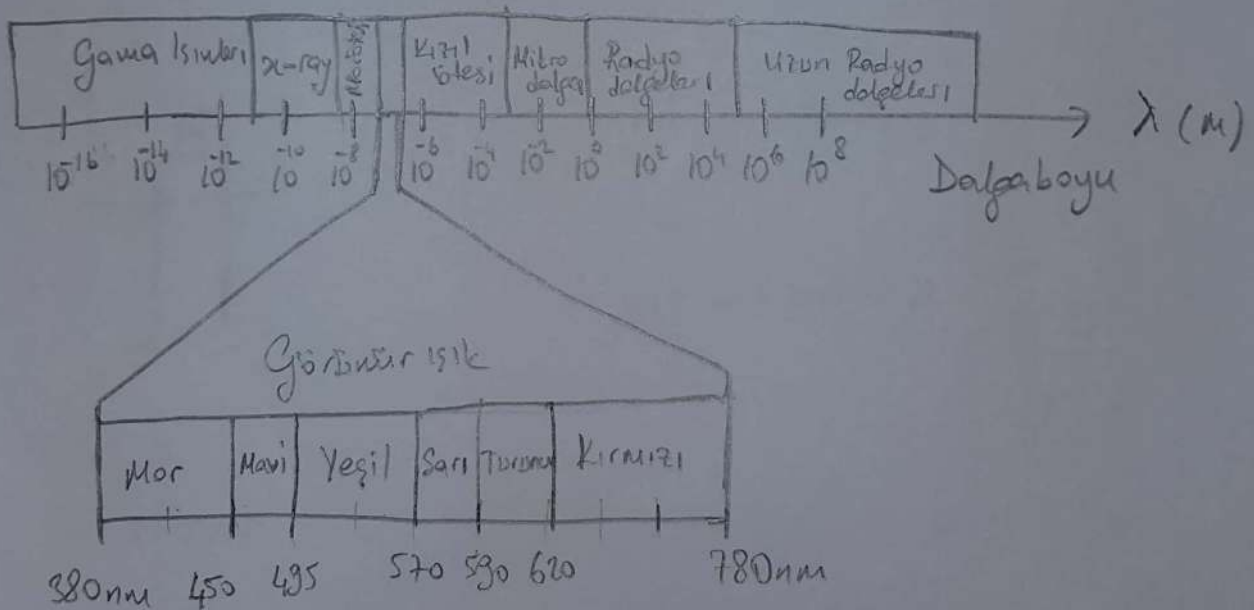 Gama Işınları x-ray Morötesi Kızıl ötesi Mikro dalga Radyo dalgaları Uzun Radyo dalgaları
10^-16 10^-14 10^-12 10^-10 10^-8 10^-6 10^-4 10^-2 10^0 10^2 10^4 10^6 10^8 λ (m)
Dalgaboyu
Görünür ışık
Mor Mavi Yeşil Sarı Turuncu Kırmızı
380nm 450 495 570 590 620 780nm